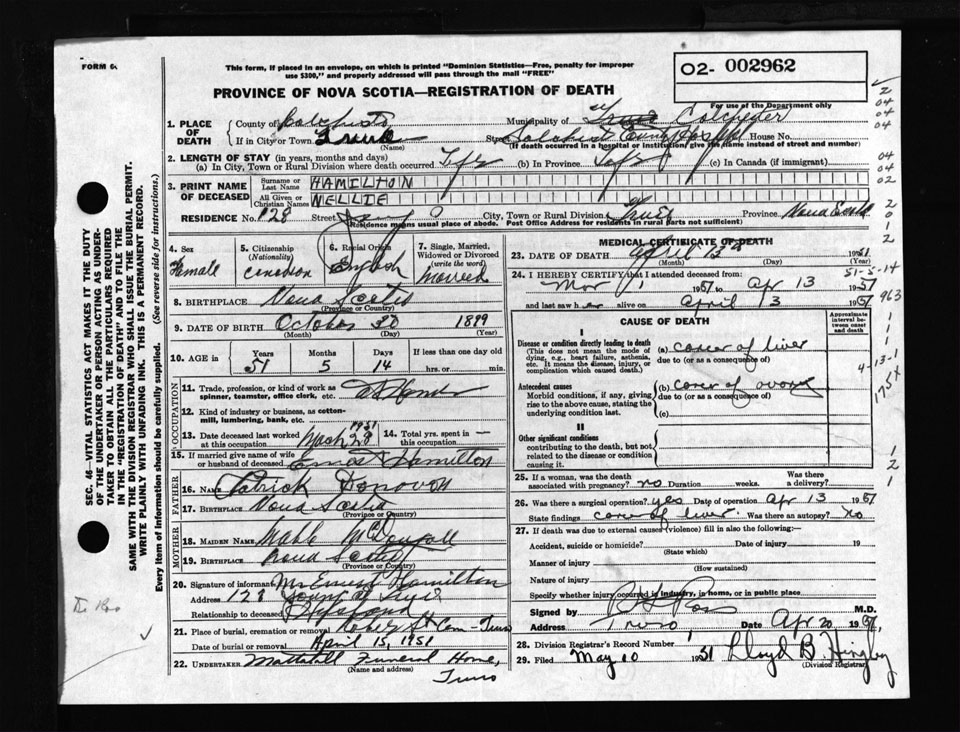 FORM 6
This form, if placed in an envelope, on which is printed "Dominion Statistics—Free, penalty for improper
use $300," and properly addressed will pass through the mail "FREE"
O2- 002962
PROVINCE OF NOVA SCOTIA—REGISTRATION OF DEATH
For use of the Department only
1. PLACE OF DEATH
County of Colchester
Municipality of Colchester
If in City or Town Truro
(Name)
Street House No.
(If death occurred in a hospital or institution, give its name instead of street and number)
2. LENGTH OF STAY (in years, months and days)
(a) In City, Town or Rural Division where death occurred (b) In Province (c) In Canada (if immigrant)
3. PRINT NAME OF DECEASED
Surname or Last Name HAMILTON
All Given or Christian Names NELLIE
RESIDENCE No. 128 Street City, Town or Rural Division Province Nova Scotia
Residence means usual place of abode. Post Office Address for residents in rural parts not sufficient)
4. Sex
Female
5. Citizenship
(Nationality)
Canadian
6. Racial Origin
English
7. Single, Married,
Widowed or Divorced
(write the word)
Married
8. BIRTHPLACE Nova Scotia
(Province or Country)
9. DATE OF BIRTH October 30 1899
(Month) (Day) (Year)
10. AGE in
Years Months Days If less than one day old
51 5 14 hrs. or min.
OCCUPATION
11. Trade, profession, or kind of work as
spinner, teamster, office clerk, etc.
12. Kind of industry or business, as cotton-
mill, lumbering, bank, etc.
13. Date deceased last worked
at this occupation. March 28 1951
14. Total yrs. spent in
this occupation. —
15. If married give name of wife
or husband of deceased Ernest Hamilton
FATHER
16. NAME Patrick Donovan
17. BIRTHPLACE Nova Scotia
(Province or Country)
MOTHER
18. MAIDEN NAME Mable McDougall
19. BIRTHPLACE Nova Scotia
(Province or Country)
20. Signature of informant Mr Ernest Hamilton
Address 128 Truro
Relationship to deceased Husband
21. Place of burial, cremation or removal Robie St Cem - Truro
Date of burial or removal April 15, 1951
22. UNDERTAKER Mattatall Funeral Home,
(Name and address)
Truro
MEDICAL CERTIFICATE OF DEATH
23. DATE OF DEATH April 13th 1951
(Month) (Day) (Year)
24. I HEREBY CERTIFY that I attended deceased from:
Mar 1 1951 to Apr 13 1951
and last saw her alive on April 3 1951
CAUSE OF DEATH
Approximate interval between onset and death
I
Disease or condition directly leading to death
(This does not mean the mode of
dying, e.g., heart failure, asthenia,
etc. It means the disease, injury, or
complication which caused death.)
(a) cancer of liver
due to (or as a consequence of)
Antecedent causes
Morbid conditions, if any, giving
rise to the above cause, stating the
underlying condition last.
(b) cancer of ovary
due to (or as a consequence of)
(c)
II
Other significant conditions
contributing to the death, but not
related to the disease or condition
causing it.
25. If a woman, was the death
associated with pregnancy? no Duration weeks. Was there
a delivery?
26. Was there a surgical operation? yes Date of operation Apr 13 1951
State findings cancer of liver Was there an autopsy? no
27. If death was due to external causes (violence) fill in also the following:—
Accident, suicide or homicide? Date of injury 19
(State which)
Manner of injury
(How sustained)
Nature of injury
Specify whether injury occurred in industry, in home, or in public place
Signed by M.D.
Address Truro Date Apr 20 1951
28. Division Registrar's Record Number
29. Filed May 10 1951 Lloyd B.
(Division Registrar)
SEC. 46 VITAL STATISTICS ACT MAKES IT THE DUTY
OF THE UNDERTAKER OR PERSON ACTING AS UNDER-
TAKER TO OBTAIN ALL THE PARTICULARS REQUIRED
IN THE "REGISTRATION OF DEATH" AND TO FILE THE
SAME WITH THE DIVISION REGISTRAR WHO SHALL ISSUE THE BURIAL PERMIT.
WRITE PLAINLY WITH UNFADING INK. THIS IS A PERMANENT RECORD.
Every item of Information should be carefully supplied. (See reverse side for instructions.)
51-5-14
963
4-13-1
175x